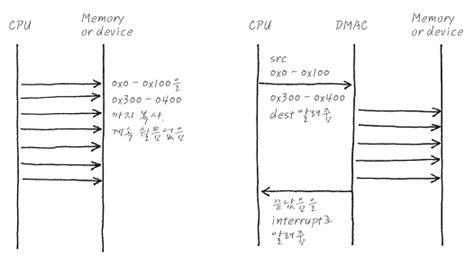 CPU
Memory
or device
0x0-0x100을
0x300-0400
까지 복사.
계속 쉴틈없음
CPU
DMAC
Memory
or device
src
0x0-0x100
0x300-0x400
dest 알려줌
끝났음을
interrupt로
알려줌